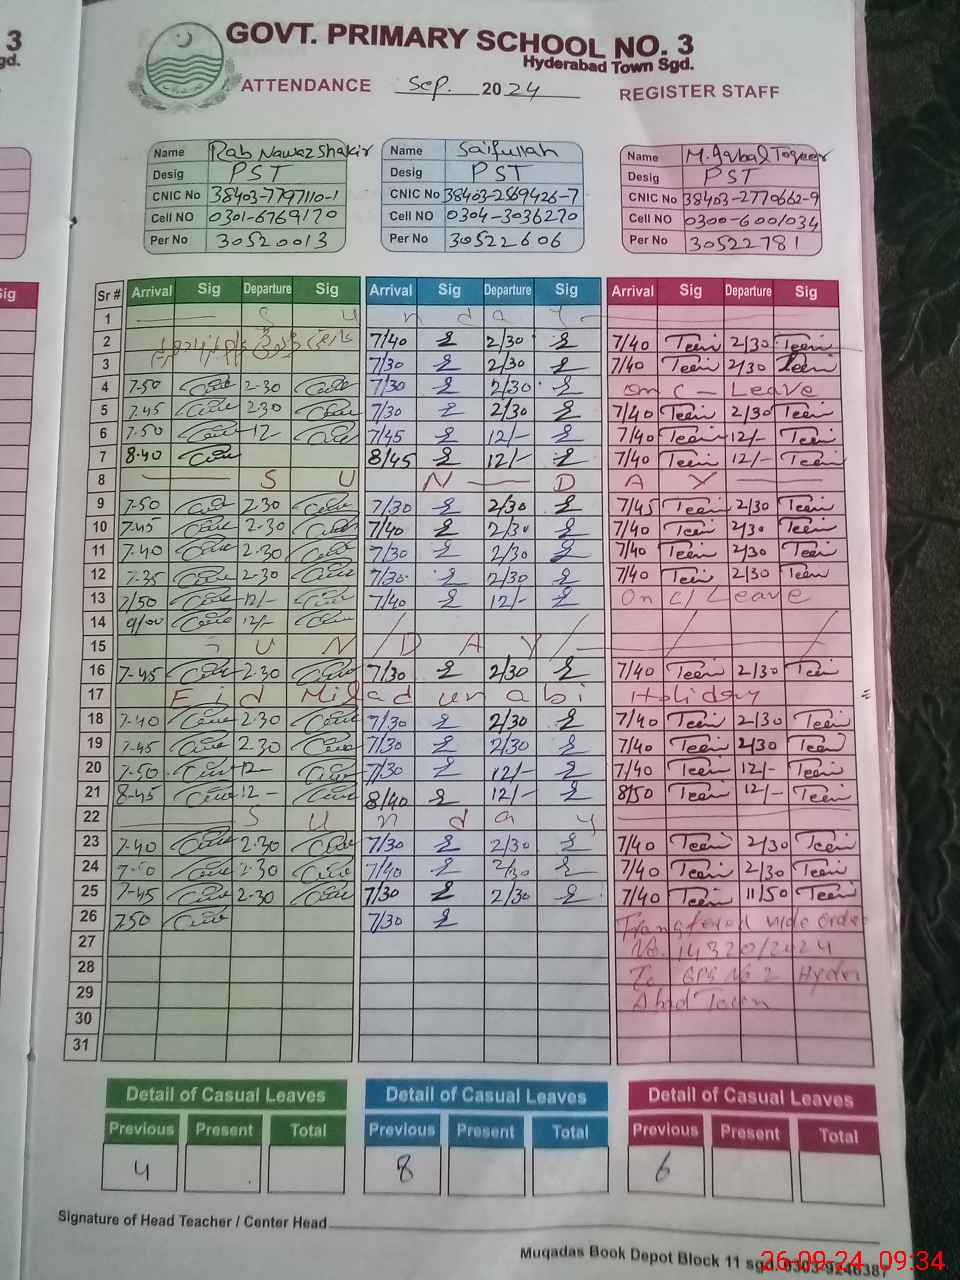 3
gd.
GOVT. PRIMARY SCHOOL NO. 3
Hyderabad Town Sgd.
ATTENDANCE Sep. 2024 REGISTER STAFF
Name Rab Nawaz Shakir Name Saifullah Name M. Iqbal Toqeer
Desig PST Desig PST Desig PST
CNIC No 38403-7797110-1 CNIC No 38403-2569426-7 CNIC No 38403-2770662-9
Cell NO 0301-6769170 Cell NO 0304-3036270 Cell NO 0300-6001034
Per No 30520013 Per No 30522606 Per No 30522781
Sig
Sr # Arrival Sig Departure Sig Arrival Sig Departure Sig Arrival Sig Departure Sig
1 S u n d a y
2 7/40 2/30 7/40 Teen 2/30 Teen
3 7/30 2/30 7/40 Teen 2/30 Teen
4 7-50 2-30 7/30 2/30 on C - Leave
5 7-45 2-30 7/30 2/30 7/40 Teen 2/30 Teen
6 7-50 12- 7/45 12/- 7/40 Teen 12/- Teen
7 8-40 8/45 12/- 7/40 Teen 12/- Teen
8 S U N D A Y
9 7-50 2-30 7/30 2/30 7/45 Teen 2/30 Teen
10 7-45 2-30 7/40 2/30 7/40 Teen 2/30 Teen
11 7-40 2-30 7/30 2/30 7/40 Teen 2/30 Teen
12 7-35 2-30 7/30 2/30 7/40 Teen 2/30 Teen
13 7/50 12/- 7/40 12/- On C/ Leave
14 9/00 12/-
15 S U N D A Y
16 7-45 2-30 7/30 2/30 7/40 Teen 2/30 Teen
17 Eid Milad un abi Holiday
18 7-40 2-30 7/30 2/30 7/40 Teen 2/30 Teen
19 7-45 2-30 7/30 2/30 7/40 Teen 2/30 Teen
20 7-50 12- 7/30 12/- 7/40 Teen 12/- Teen
21 8-45 12- 8/40 12/- 8/50 Teen 12/- Teen
22 S u n d a y
23 7-40 2-30 7/30 2/30 7/40 Teen 2/30 Teen
24 7-50 2-30 7/40 2/30 7/40 Teen 2/30 Teen
25 7-45 2-30 7/30 2/30 7/40 Teen 11/50 Teen
26 7-50 7/30 Transfered vide order
27 No. 14320/2024
28 To GPS No 2 Hyder
29 Abad Town
30
31
Detail of Casual Leaves Detail of Casual Leaves Detail of Casual Leaves
Previous Present Total Previous Present Total Previous Present Total
4 8 6
Signature of Head Teacher / Center Head
Muqadas Book Depot Block 11 sgd.
26-09-24 09:34